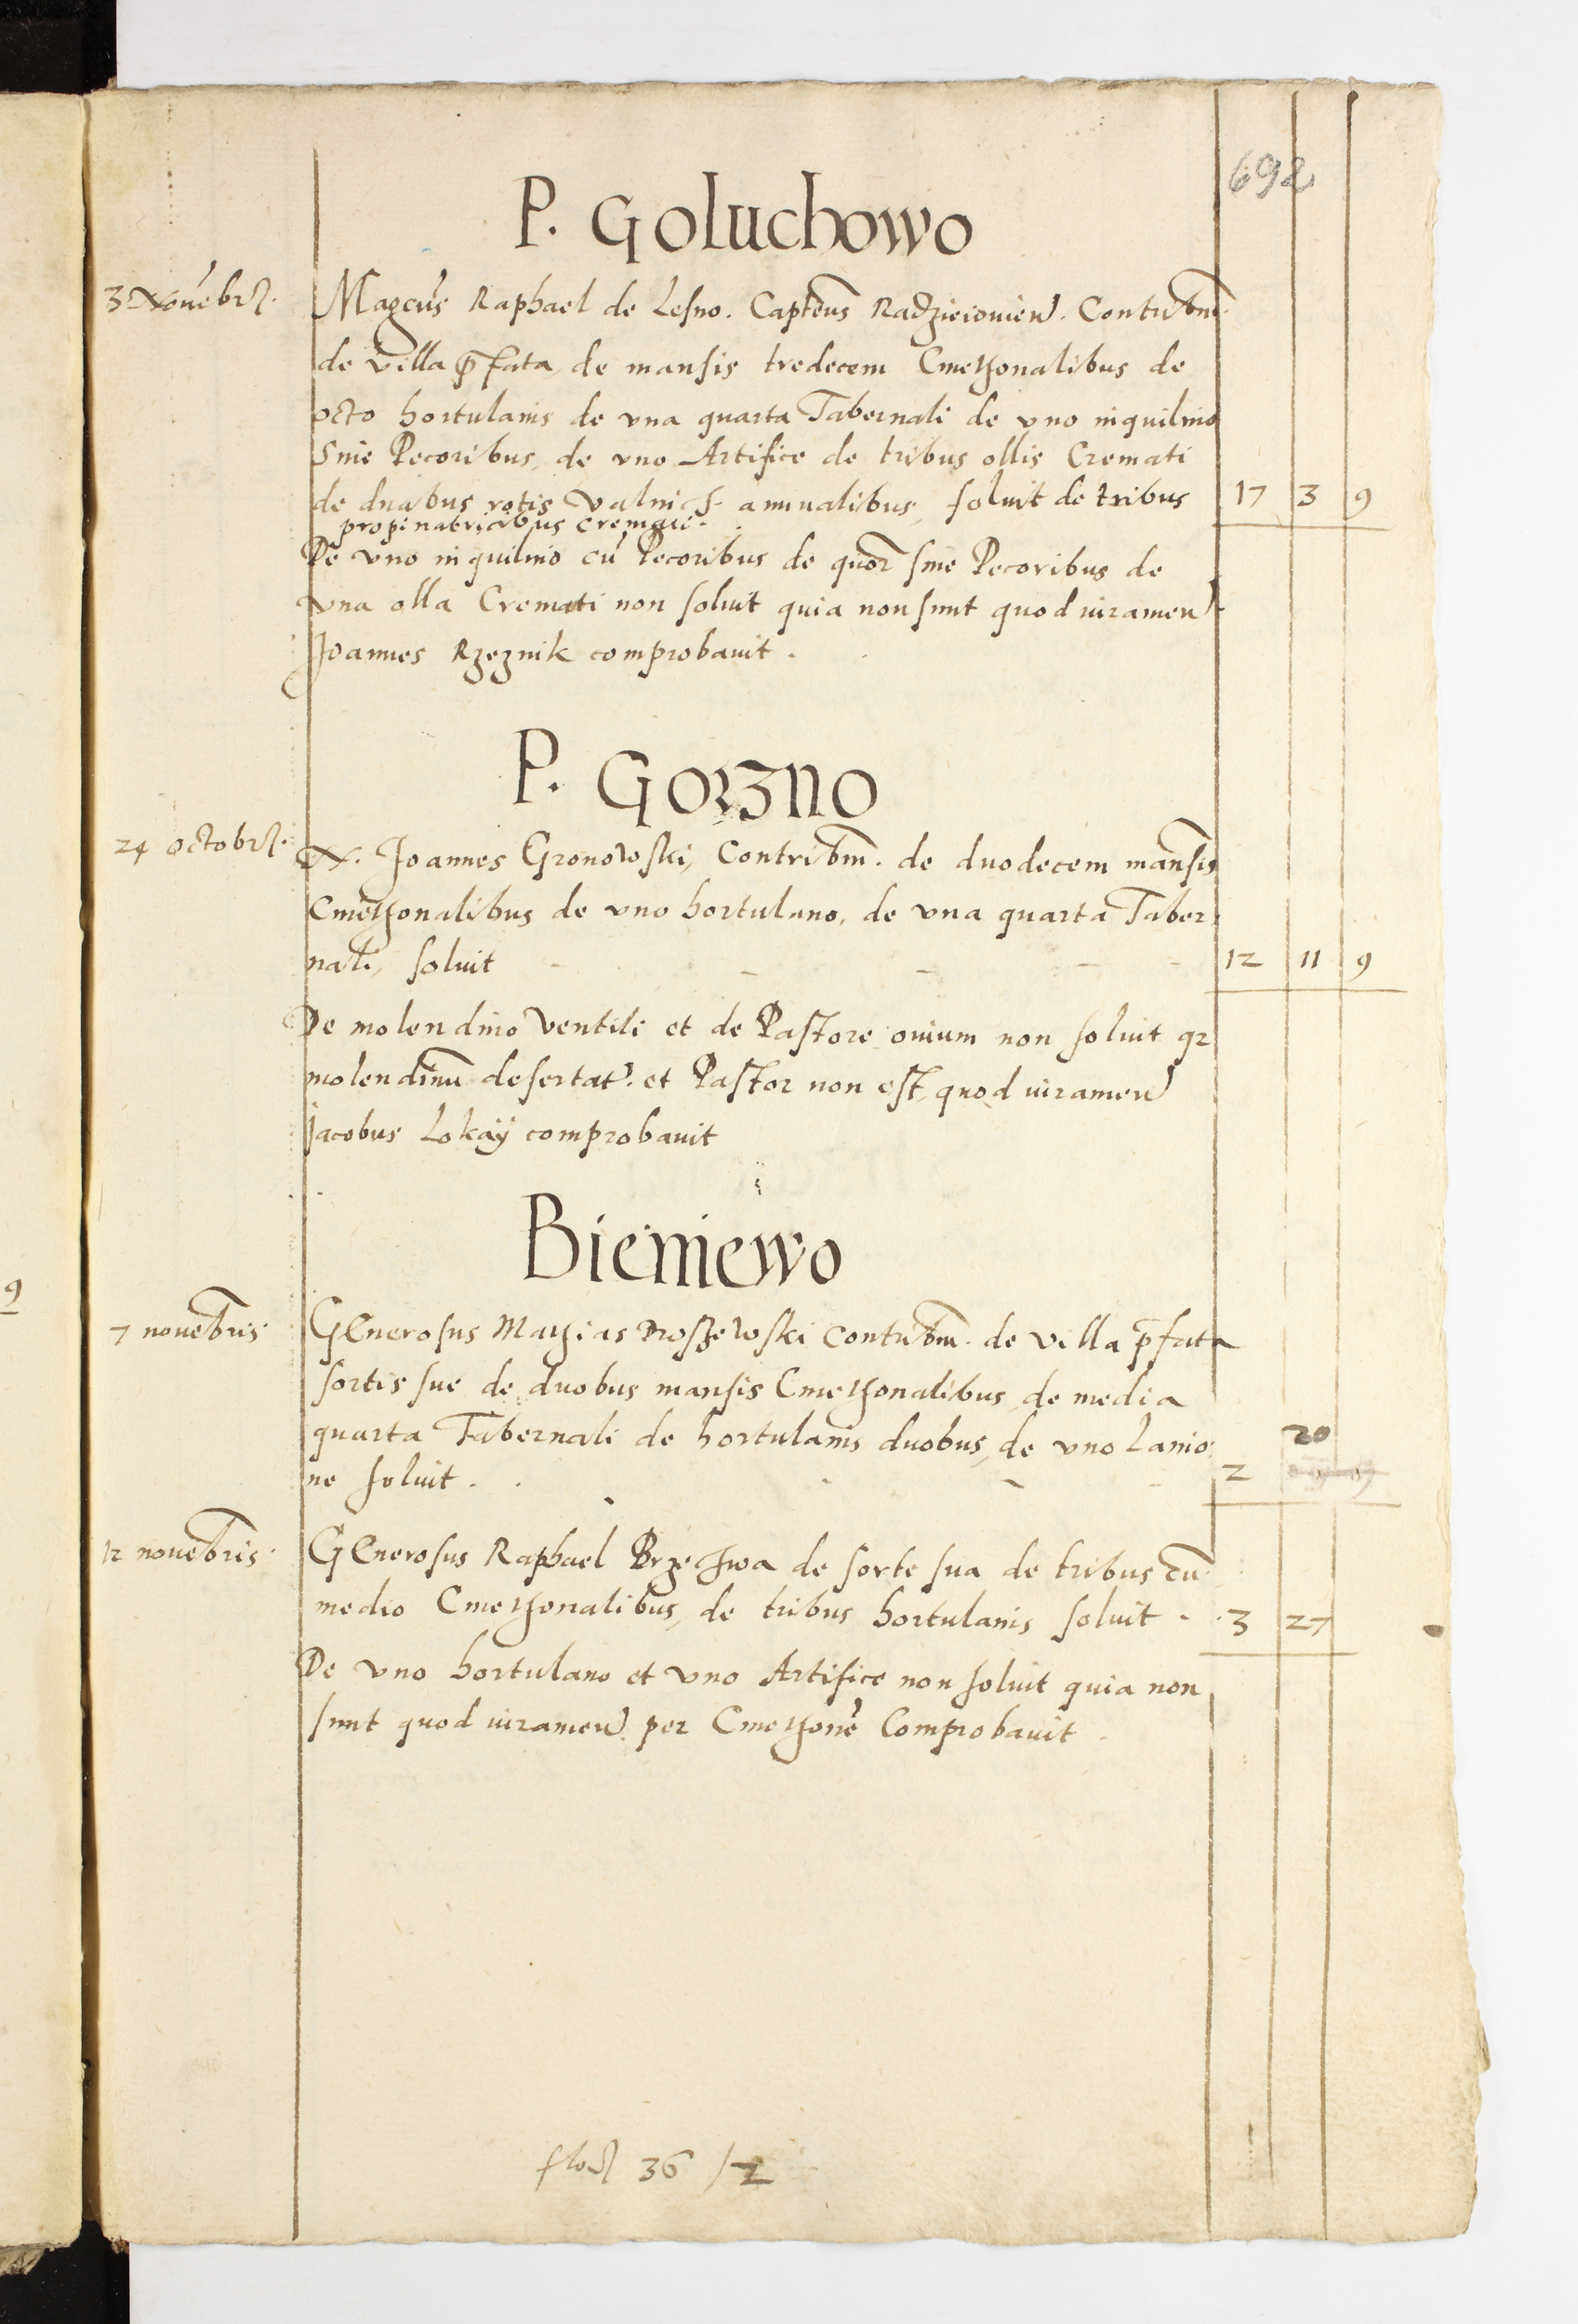 692
P. Goluchowo
3 Nouēbrꝭ. Magcus Raphael de Lesno. Captēus Radzieiouien. Contribm.
de villa p̄fata de mansis tredecem Cmethonalibus de
octo hortulanis de vna quarta Tabernali de vno inquilino
Sine Pecoribus, de vno Artifice de tribus ollis Cremati
de duabus rotis Valnich annualibus, soluit de tribus 17 3 9
propinatricibus cremati.
De vno inquilino cū Pecoribus de quor sine Pecoribus de
vna olla Cremati non soluit quia non sunt quod iuramen
Joannes Rzeznik comprobauit.
P. Gorzno
24 octobrꝭ. N. Joannes Gronowski, Contribm. de duodecem mansis
Cmethonalibus de vno hortulano, de vna quarta Taber
nali, soluit - - - - - 12 11 9
De molendino Ventili et de Pastore ouium non soluit qr
molendinū desertat. et Pastor non est, quod iuramen
Jacobus Lokaÿ comprobauit
Bieniewo
7 nouēbris. GEnerosus Mathias Droszewski contribm. de villa p̄fata
sortis sue de duobus mansis Cmethonalibus de media
quarta Tabernali de hortulanis duobus, de vno Lanio 20
ne soluit. . - - 2
12 nouēbris. GEnerosus Raphael Brzechwa de sorte sua de tribus cū
medio Cmethonalibus, de tribus hortulanis soluit - 3 27
De vno hortulano et vno Artifice non soluit quia non
sunt quod iuramen per Cmethonē Comprobauit
36 / 2